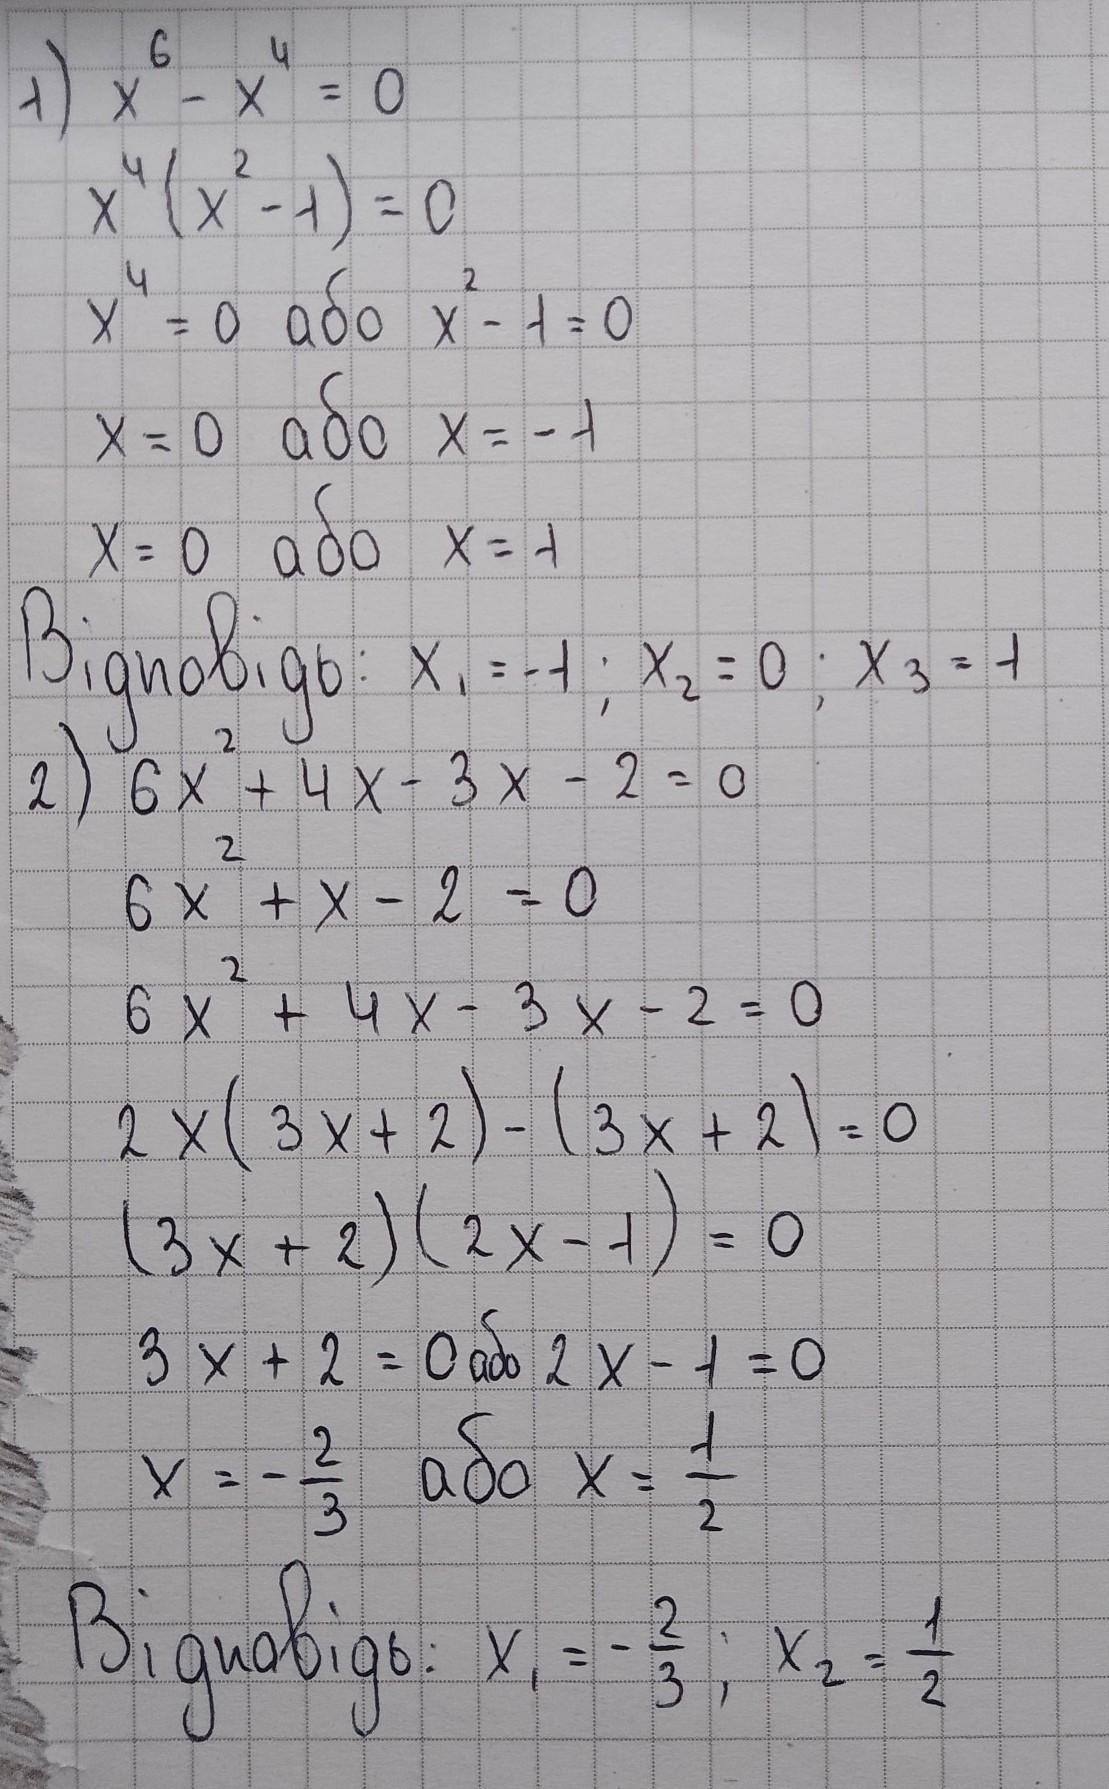 1) x⁶ - x⁴ = 0
x⁴(x² - 1) = 0
x⁴ = 0 або x² - 1 = 0
x = 0 або x = -1
x = 0 або x = 1
Відповідь: x₁ = -1; x₂ = 0; x₃ = 1
2) 6x² + 4x - 3x - 2 = 0
6x² + x - 2 = 0
6x² + 4x - 3x - 2 = 0
2x(3x + 2) - (3x + 2) = 0
(3x + 2)(2x - 1) = 0
3x + 2 = 0 або 2x - 1 = 0
x = -2/3 або x = 1/2
Відповідь: x₁ = -2/3; x₂ = 1/2